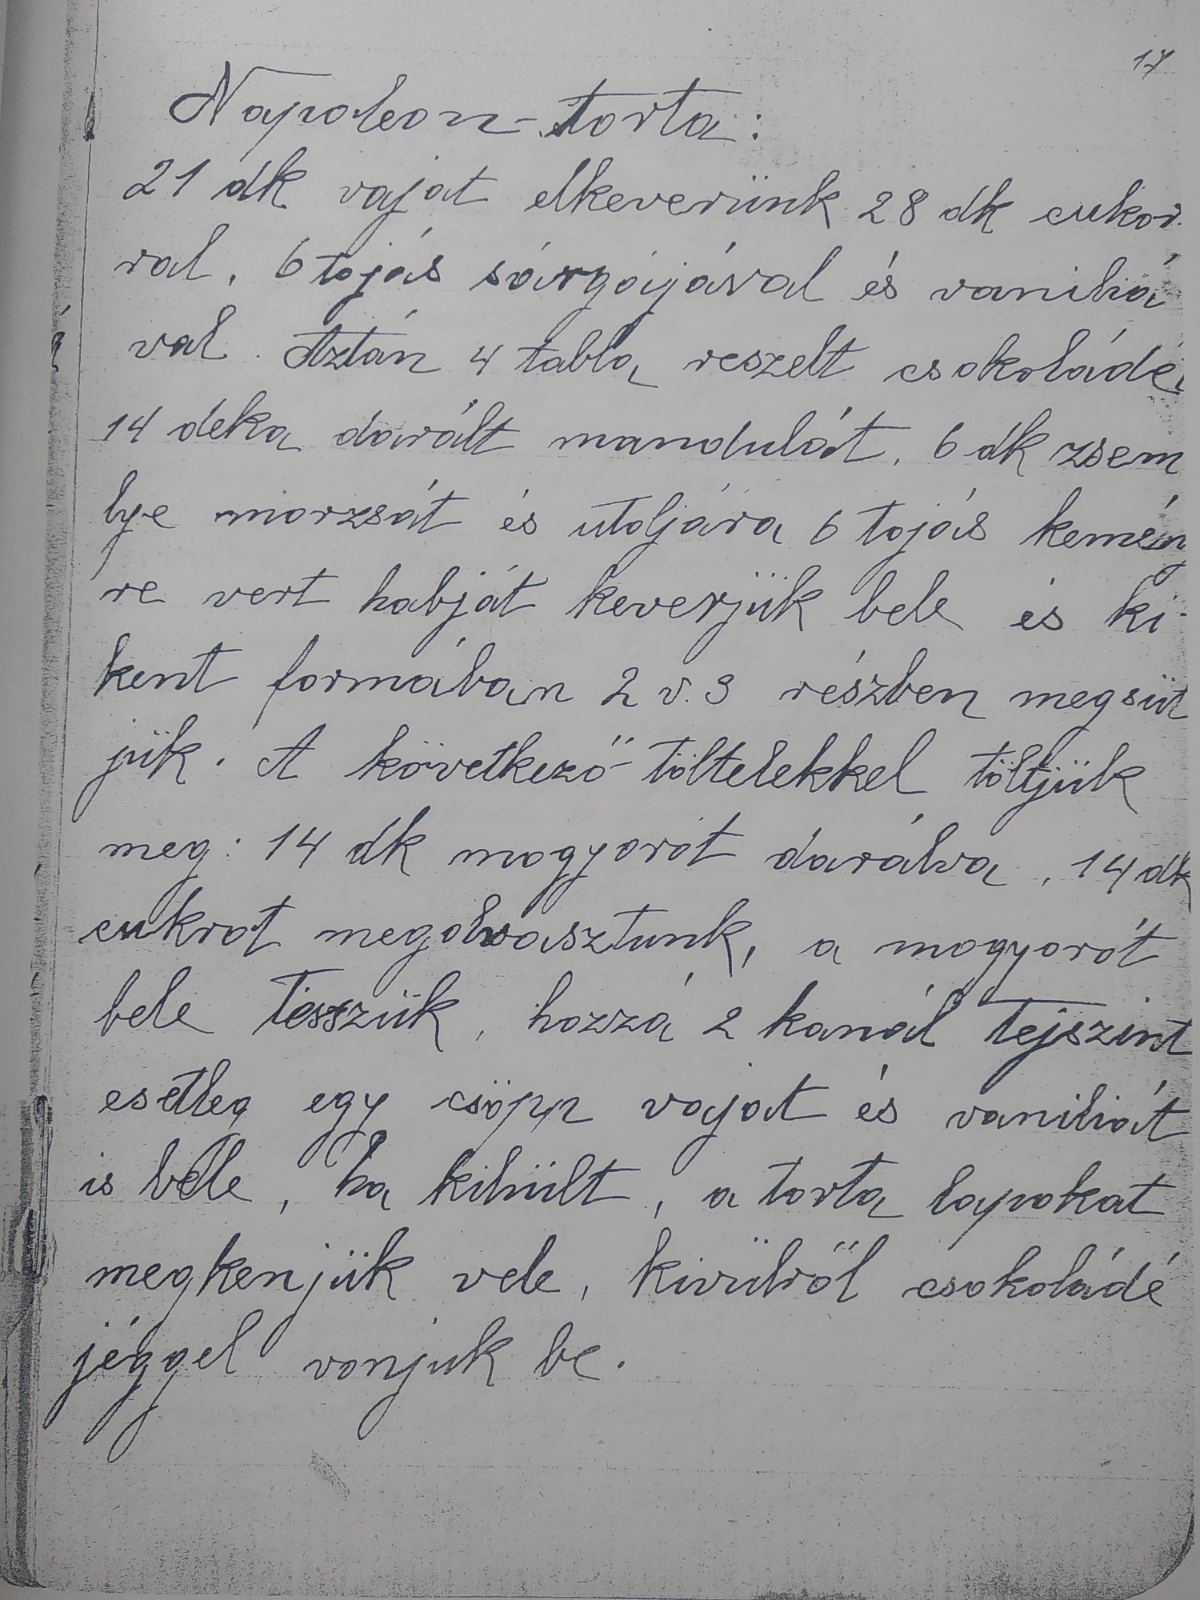 17
Napoleon-torta:
21 dk vajat elkeverünk 28 dk cukor-
ral, 6 tojás sárgájával és vaniliá
val. Aztán 4 tábla reszelt csokoládé,
14 deka darált mandulát, 6 dk zsem
lye morzsát és utoljára 6 tojás kemény
re vert habját keverjük bele és ki-
kent formában 2 v. 3 részben megsüt
jük. A következő töltelékkel töltjük
meg: 14 dk mogyorót darálva, 14 dk
cukrot megolvasztunk, a mogyorót
bele tesszük, hozzá 2 kanál tejszint
esetleg egy csöpp vajat és vaniliát
is bele, ha kihült, a torta lapokat
megkenjük vele, kivülről csokoládé
jéggel vonjuk be.